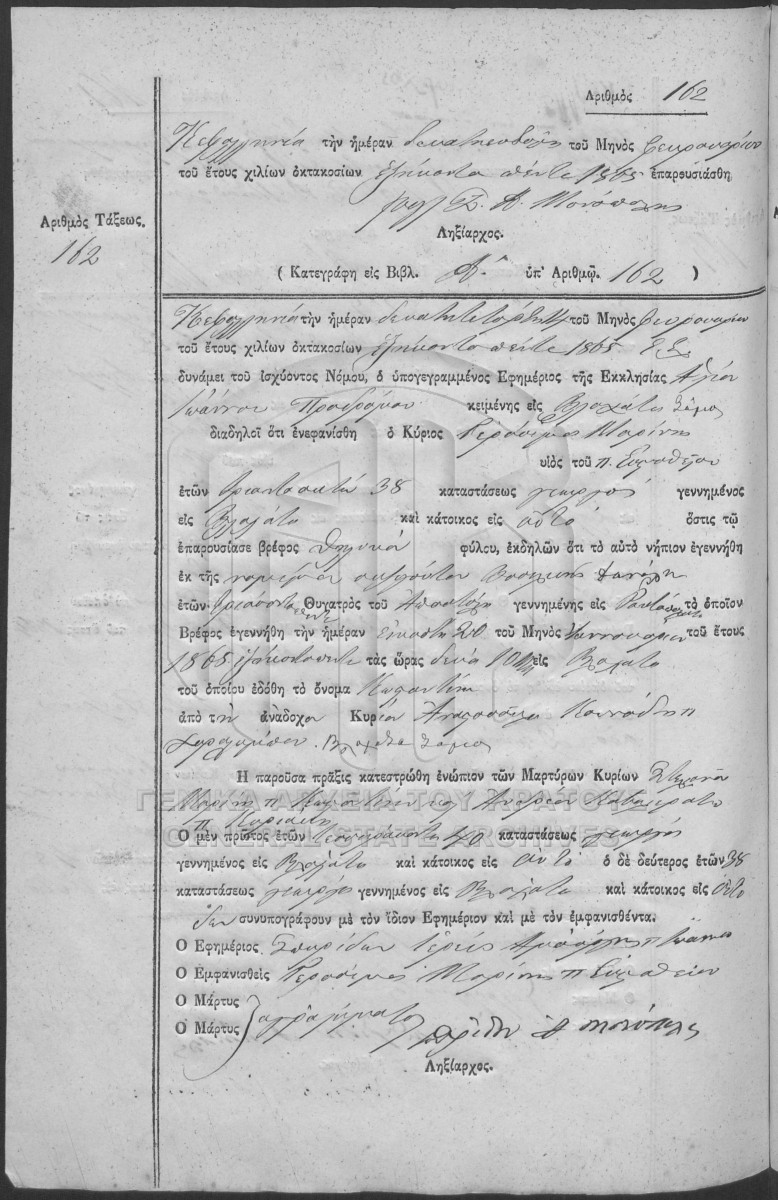 Ἀριθμὸς 162
Κεφαλληνία τὴν ἡμέραν τοῦ Μηνὸς Φευρουαρίου
τοῦ ἔτους χιλίων ὀκτακοσίων ἑξήκοντα πέντε 1865 ἐπαρουσιάσθη
Ληξίαρχος.
Ἀριθμὸς Τάξεως.
162
( Κατεγράφη εἰς Βιβλ. Α. ὑπ' Ἀριθμῷ. 162 )
Κεφαλληνία τὴν ἡμέραν δεκάτη τετάρτη 14 τοῦ Μηνὸς Φευρουαρίου
τοῦ ἔτους χιλίων ὀκτακοσίων ἑξήκοντα πέντε 1865
δυνάμει τοῦ ἰσχύοντος Νόμου, ὁ ὑπογεγραμμένος Ἐφημέριος τῆς Ἐκκλησίας Ἁγίου
Ἰωάννου Προδρόμου κειμένης εἰς Βλαχάτα Σάμος
διαδηλοῖ ὅτι ἐνεφανίσθη ὁ Κύριος Γεράσιμος Μαρίνης
υἱὸς τοῦ π. Εὐσταθίου
ἐτῶν τριανταοκτώ 38 καταστάσεως γεωργὸς γεννημένος
εἰς Βλαχάτα καὶ κάτοικος εἰς αὐτό ὅστις τῷ
ἐπαρουσίασε βρέφος θηλυκοῦ φύλου, ἐκδηλῶν ὅτι τὸ αὐτὸ νήπιον ἐγεννήθη
ἐκ τῆς νομίμου συζύγου του Βασιλικῆς
ἐτῶν τριάκοντα πέντε Θυγατρὸς τοῦ Ἀποστόλη γεννημένης εἰς τὸ ὁποῖον
Βρέφος ἐγεννήθη τὴν ἡμέραν εἰκοστή 20 τοῦ Μηνὸς Ἰαννουαρίου τοῦ ἔτους
1865 ἑξήκοντα πέντε τὰς ὥρας δέκα 10 εἰς Βλαχάτα
τοῦ ὁποίου ἐδόθη τὸ ὄνομα
ἀπὸ τὴν ἀνάδοχον Κυρίαν π.
Χαραλάμπου. Βλαχάτα Σάμος
Ἡ παροῦσα πρᾶξις κατεστρώθη ἐνώπιον τῶν Μαρτύρων Κυρίων
Μαρίνη π. Ἀνδρέου
ΓΕΝΙΚΑ ΑΡΧΕΙΑ ΤΟΥ ΚΡΑΤΟΥΣ
GENERAL STATE ARCHIVES
Ὁ μὲν πρῶτος ἐτῶν τεσσαράκοντα 40 καταστάσεως γεωργὸς
γεννημένος εἰς Βλαχάτα καὶ κάτοικος εἰς αὐτό ὁ δὲ δεύτερος ἐτῶν 38
καταστάσεως γεωργὸς γεννημένος εἰς Βλαχάτα καὶ κάτοικος εἰς αὐτό
δὲν συνυπογράφουν μὲ τὸν ἴδιον Ἐφημέριον καὶ μὲ τὸν ἐμφανισθέντα.
Ὁ Ἐφημέριος Σπυρίδων Ἱερεὺς π. Ἰωάννου
Ὁ Ἐμφανισθεὶς Γεράσιμος Μαρίνης π. Εὐσταθείου
Ὁ Μάρτυς
Ὁ Μάρτυς ἀγράμματοι
Ληξίαρχος.